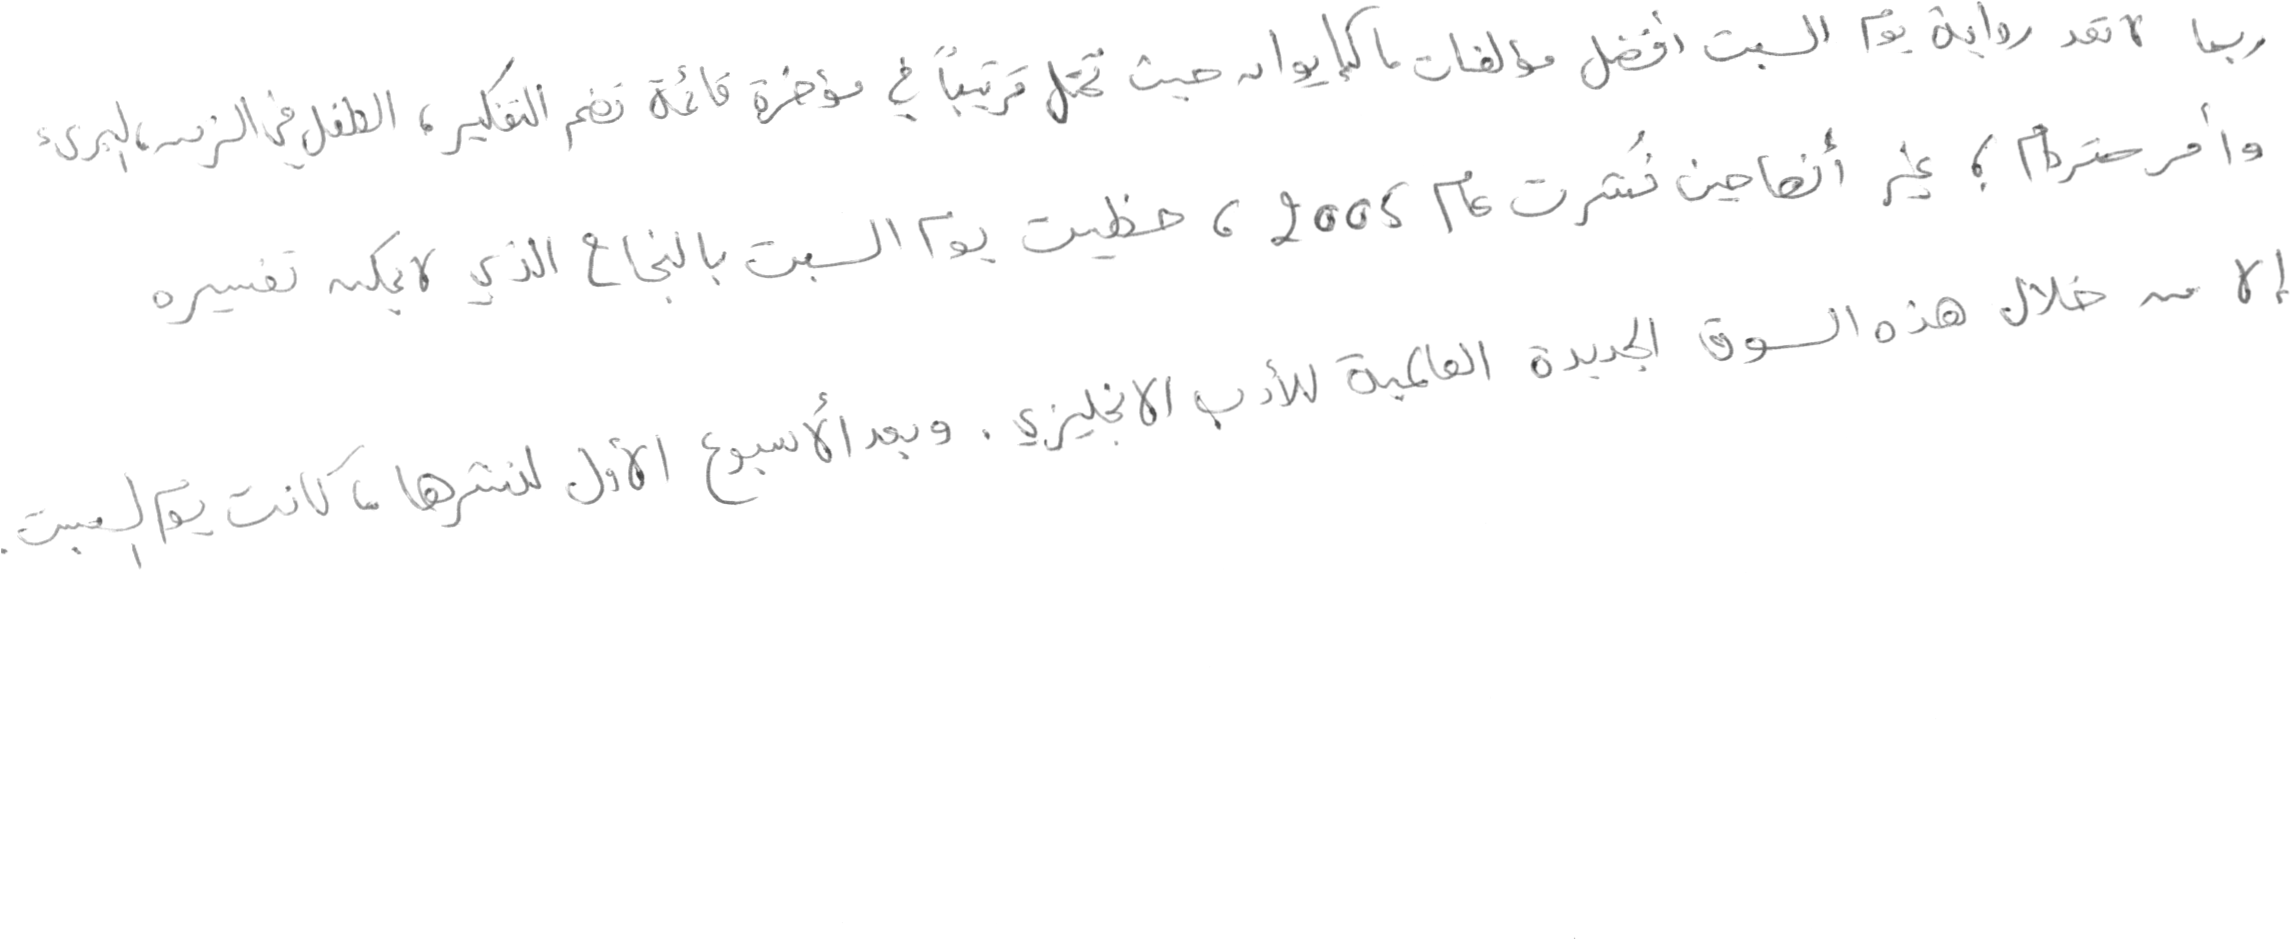 ربما لا تعد رواية يوم السبت أفضل مؤلفات ماكإيوان حيث تحتل ترتيباً في مؤخرة قائمة تضم التفكير، الطفل في الزمن، البريء
وأمستردام؛ غير أنها حين نُشرت عام 2005، حظيت يوم السبت بالنجاح الذي لا يمكن تفسيره
إلا من خلال هذه السوق الجديدة العالمية للأدب الانجليزي. وبعد الأسبوع الأول لنشرها، كانت يوم السبت.